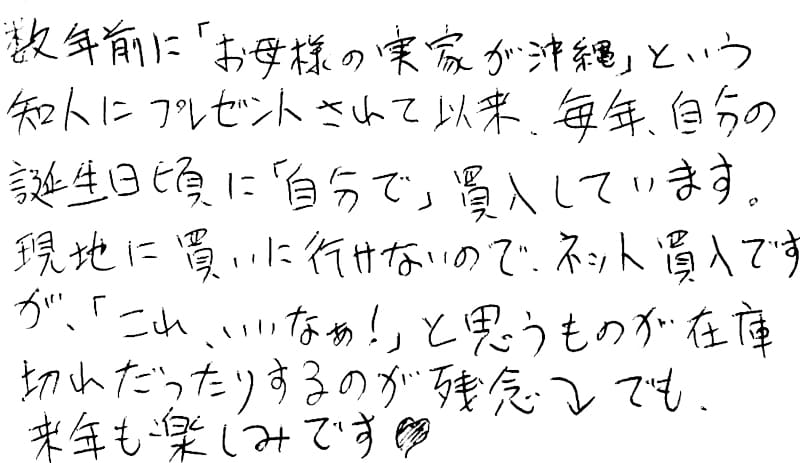 数年前に「お母様の実家が沖縄」という
知人にプレゼントされて以来、毎年、自分の
誕生日頃に「自分で」買入しています。
現地に買いに行けないので、ネット買入です
が、「これ、いいなぁ!」と思うものが在庫
切れだったりするのが残念⤵でも、
来年も楽しみです♥